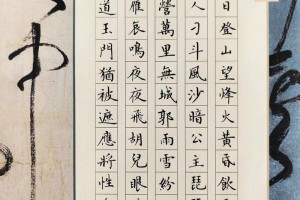 日登山望烽火黃昏飲
人刁斗風沙暗公主琵
營萬里無城郭雨雪紛
雁哀鳴夜夜飛胡兒眼
道玉門猶被遮應將性